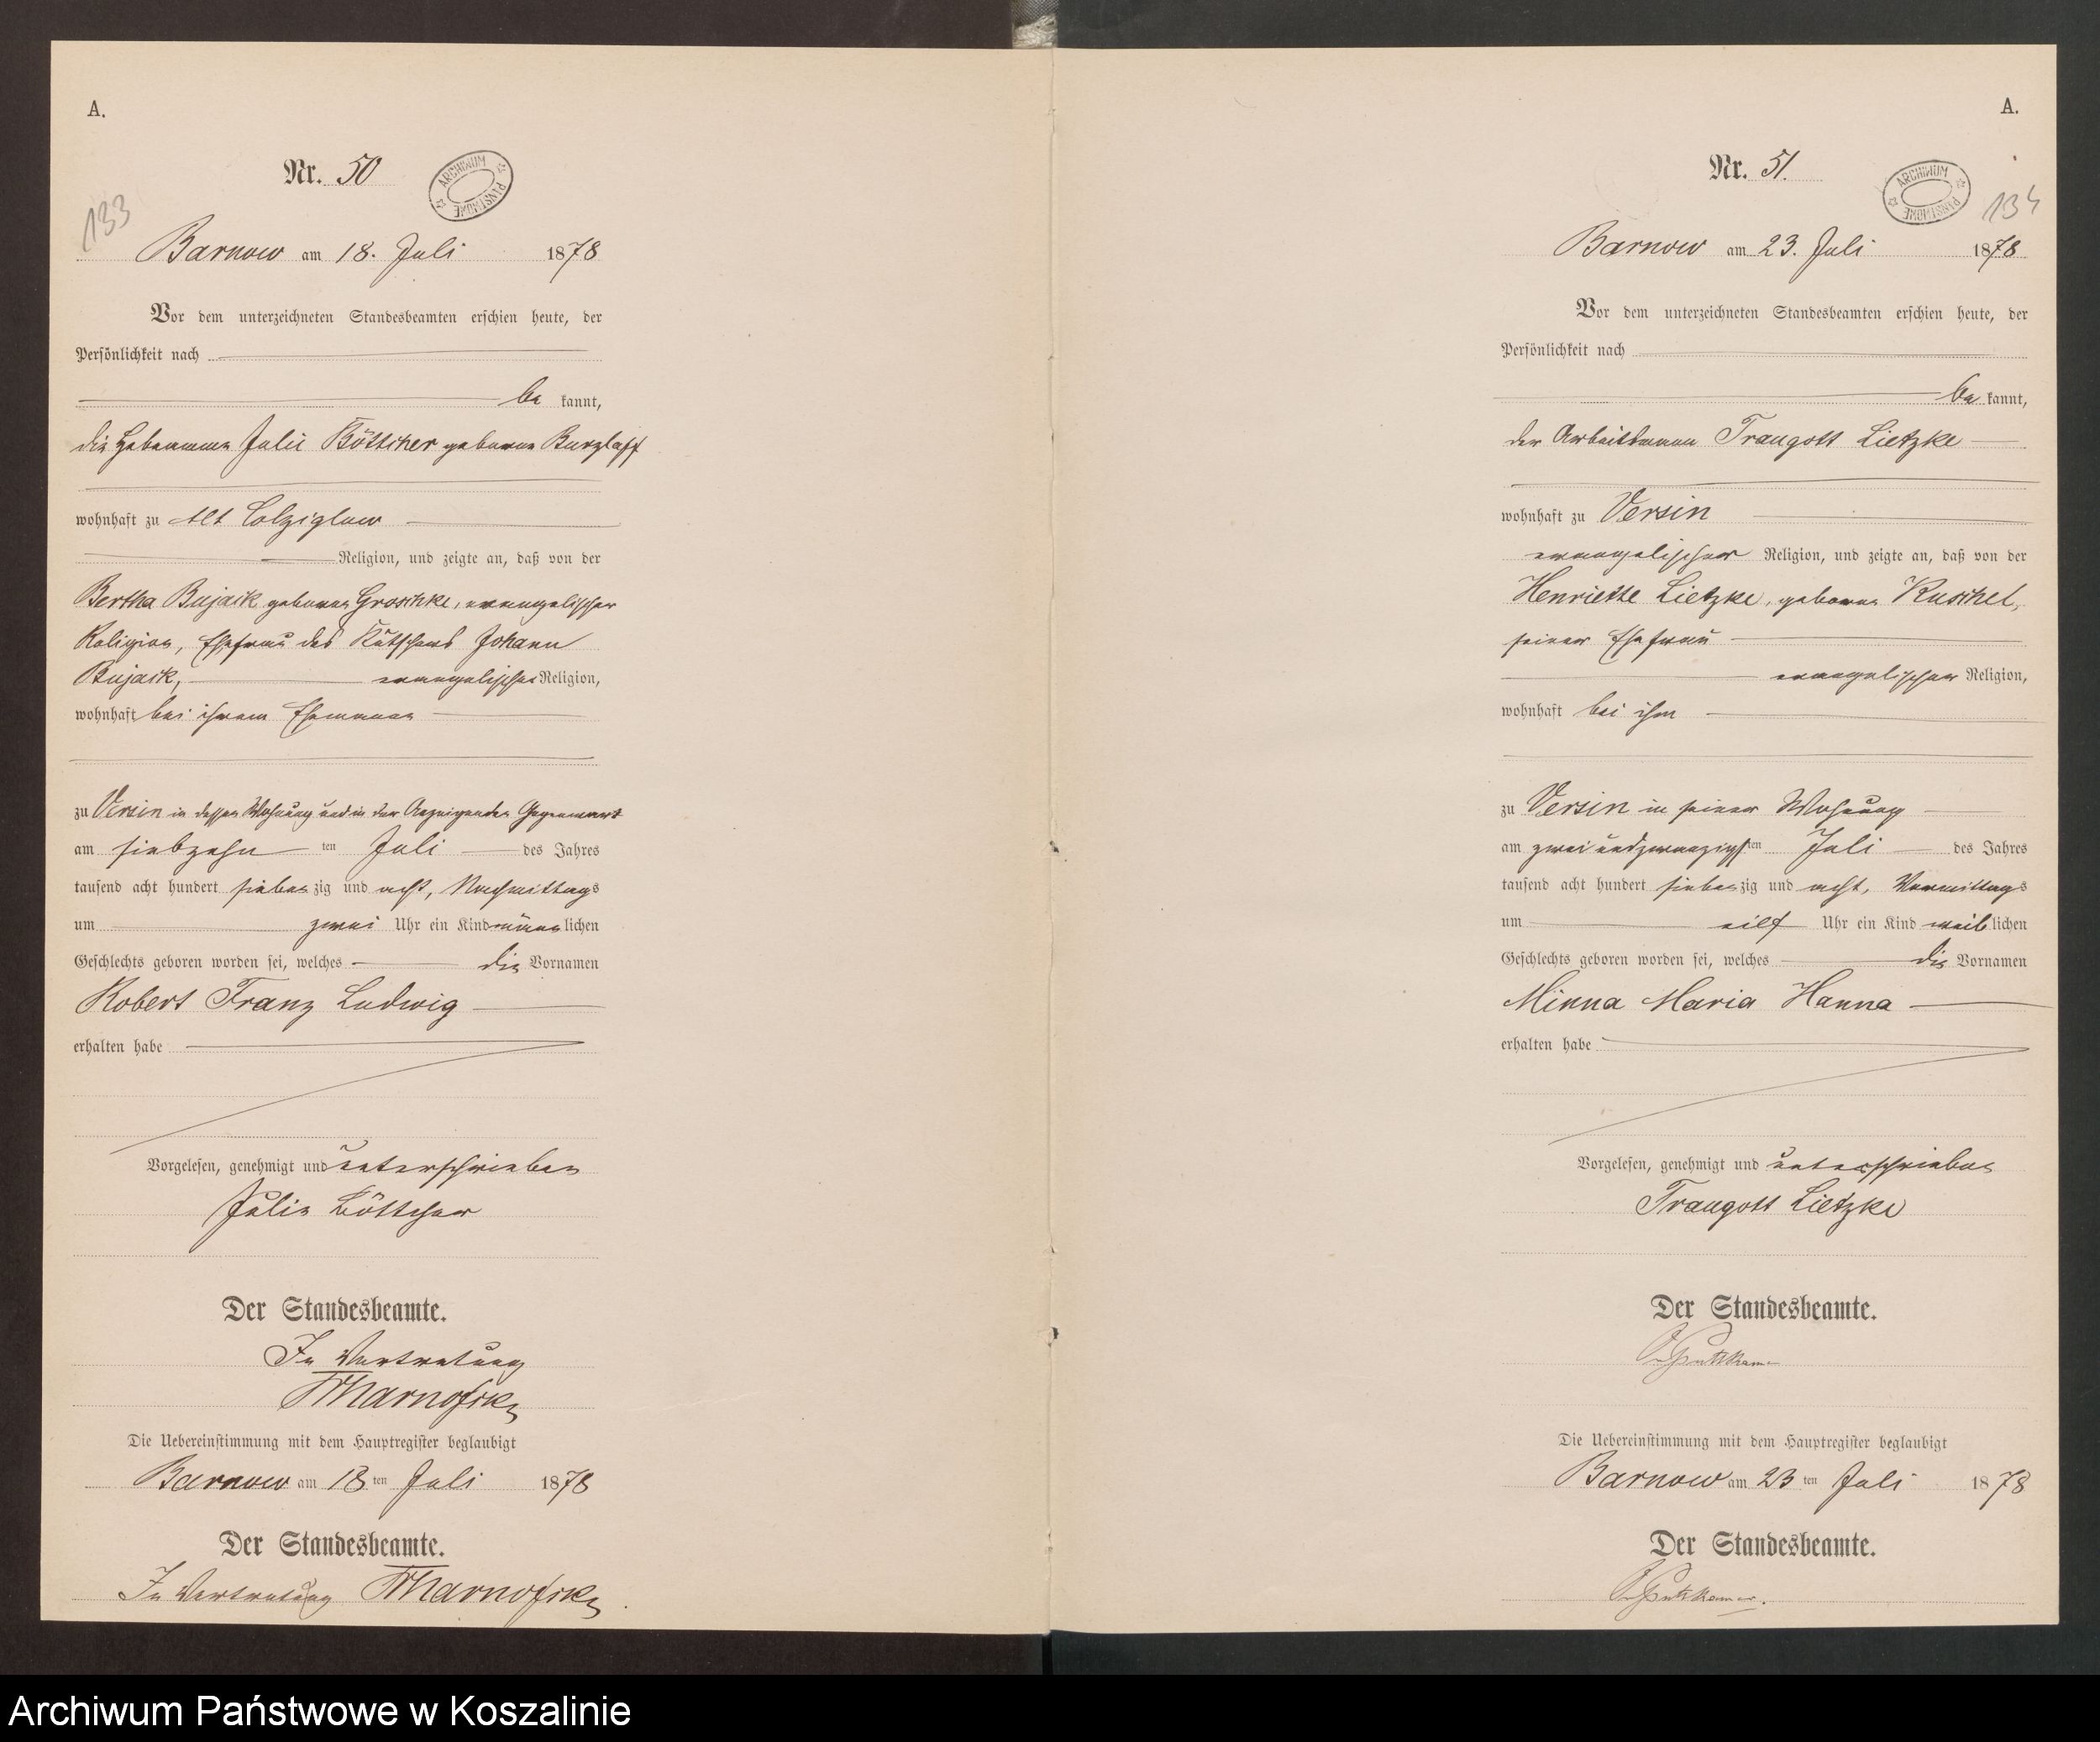 A.
Nr. 50
ARCHIWUM PAŃSTWOWE
133
Barnow am 18. Juli 1878
Vor dem unterzeichneten Standesbeamten erschien heute, der
Persönlichkeit nach
be kannt,
die Hebamme Julie Böttcher geborne Burzlaff
wohnhaft zu Alt Colziglow
Religion, und zeigte an, daß von der
Bertha Bujack geborne Groschke, evangelischer
Religion, Ehefrau des Kutschers Johann
Bujack, evangelischer Religion,
wohnhaft bei ihrem Ehemann
zu Versin in dessen Wohnung und in der Anzeigenden Gegenwart
am siebzehn ten Juli des Jahres
tausend acht hundert sieben zig und acht, Nachmittags
um zwei Uhr ein Kind männ lichen
Geschlechts geboren worden sei, welches die Vornamen
Robert Franz Ludwig
erhalten habe
Vorgelesen, genehmigt und unterschrieben
Julie Böttcher
Der Standesbeamte.
In Vertretung
Die Uebereinstimmung mit dem Hauptregister beglaubigt
Barnow am 18 ten Juli 1878
Der Standesbeamte.
In Vertretung
A.
Nr. 51.
ARCHIWUM PAŃSTWOWE
134
Barnow am 23. Juli 1878
Vor dem unterzeichneten Standesbeamten erschien heute, der
Persönlichkeit nach
be kannt,
der Arbeitsmann Traugott Lietzke
wohnhaft zu Versin
evangelischer Religion, und zeigte an, daß von der
Henriette Lietzke, geborne Kuschel,
seiner Ehefrau
evangelischer Religion,
wohnhaft bei ihm
zu Versin in seiner Wohnung
am zwei und zwanzigsten Juli des Jahres
tausend acht hundert sieben zig und acht, Vormittags
um eilf Uhr ein Kind weib lichen
Geschlechts geboren worden sei, welches die Vornamen
Minna Maria Hanna
erhalten habe
Vorgelesen, genehmigt und unterschrieben
Traugott Lietzke
Der Standesbeamte.
Die Uebereinstimmung mit dem Hauptregister beglaubigt
Barnow am 23 ten Juli 1878
Der Standesbeamte.
Archiwum Państwowe w Koszalinie